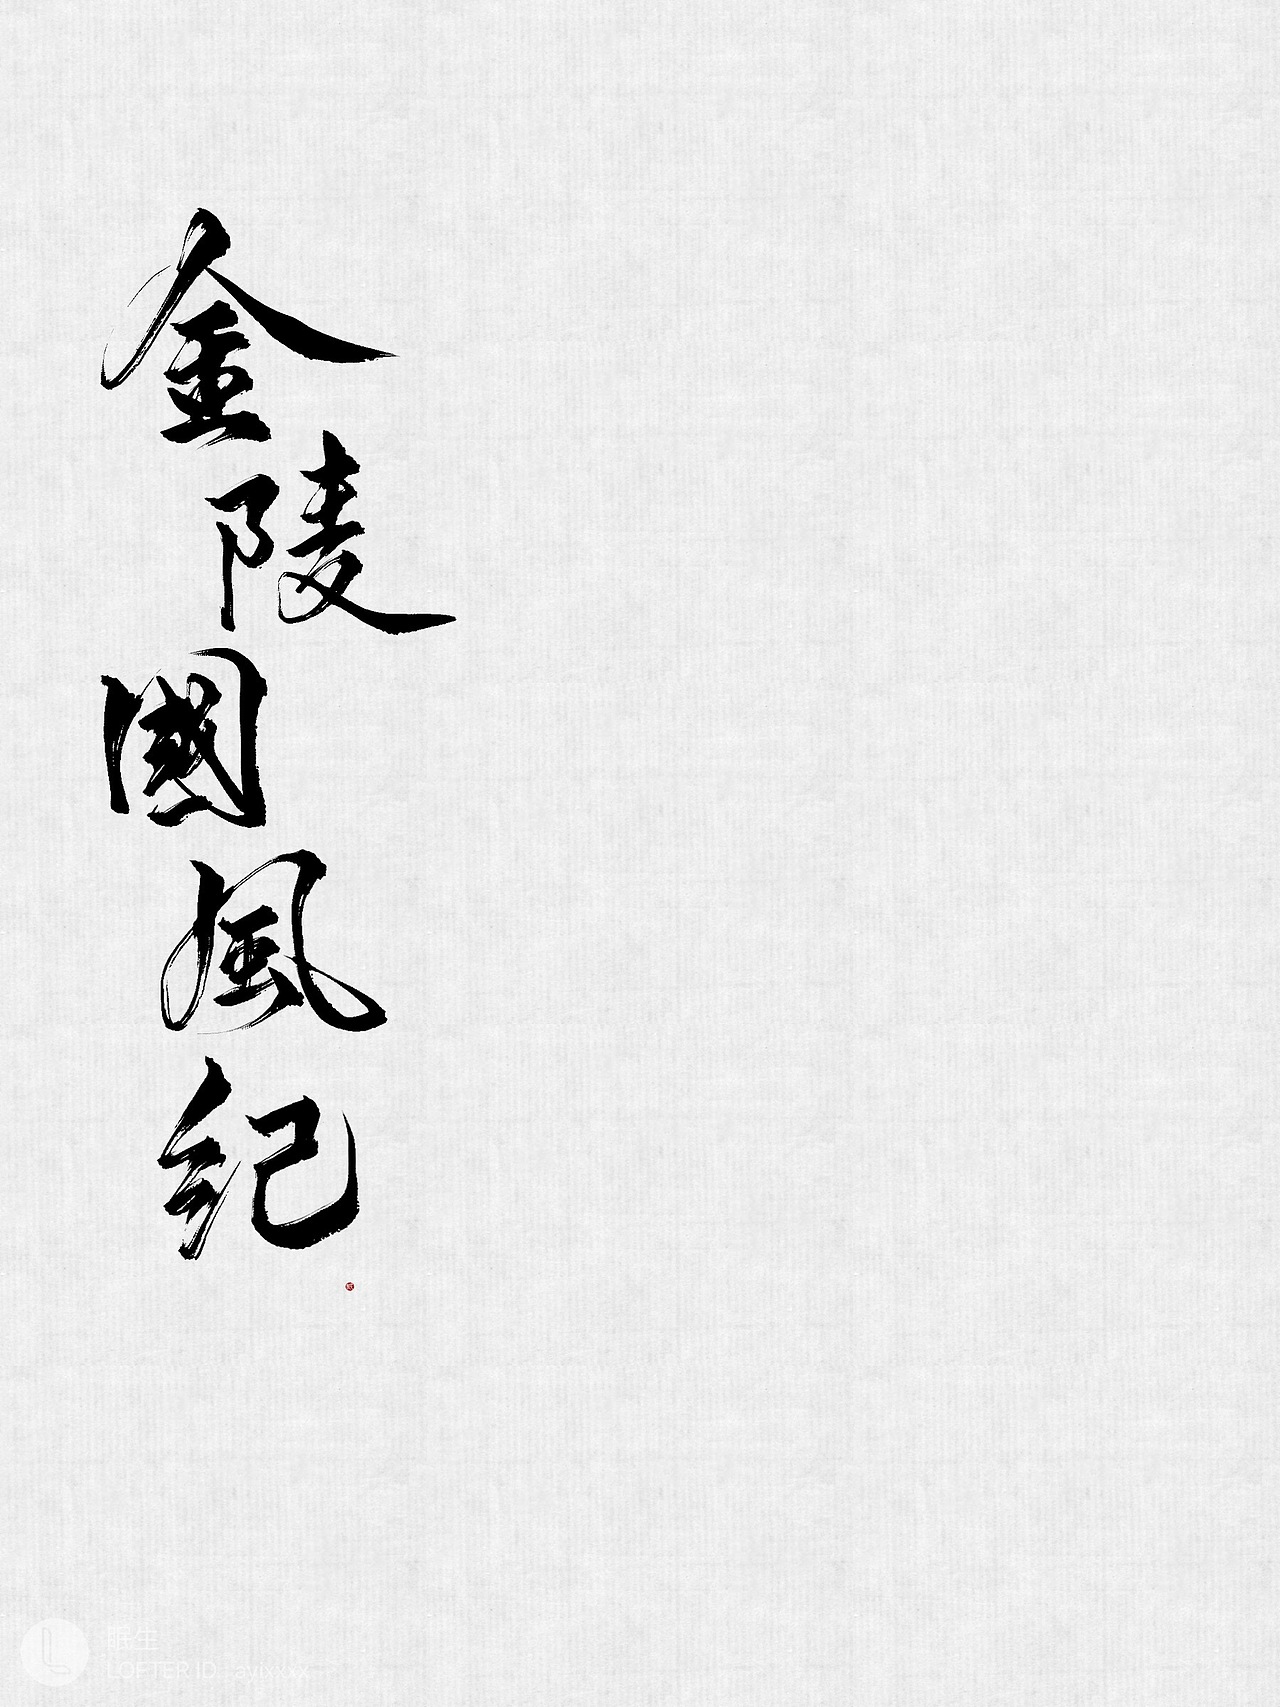 金陵國風紀
眠生
LOFTER ID: